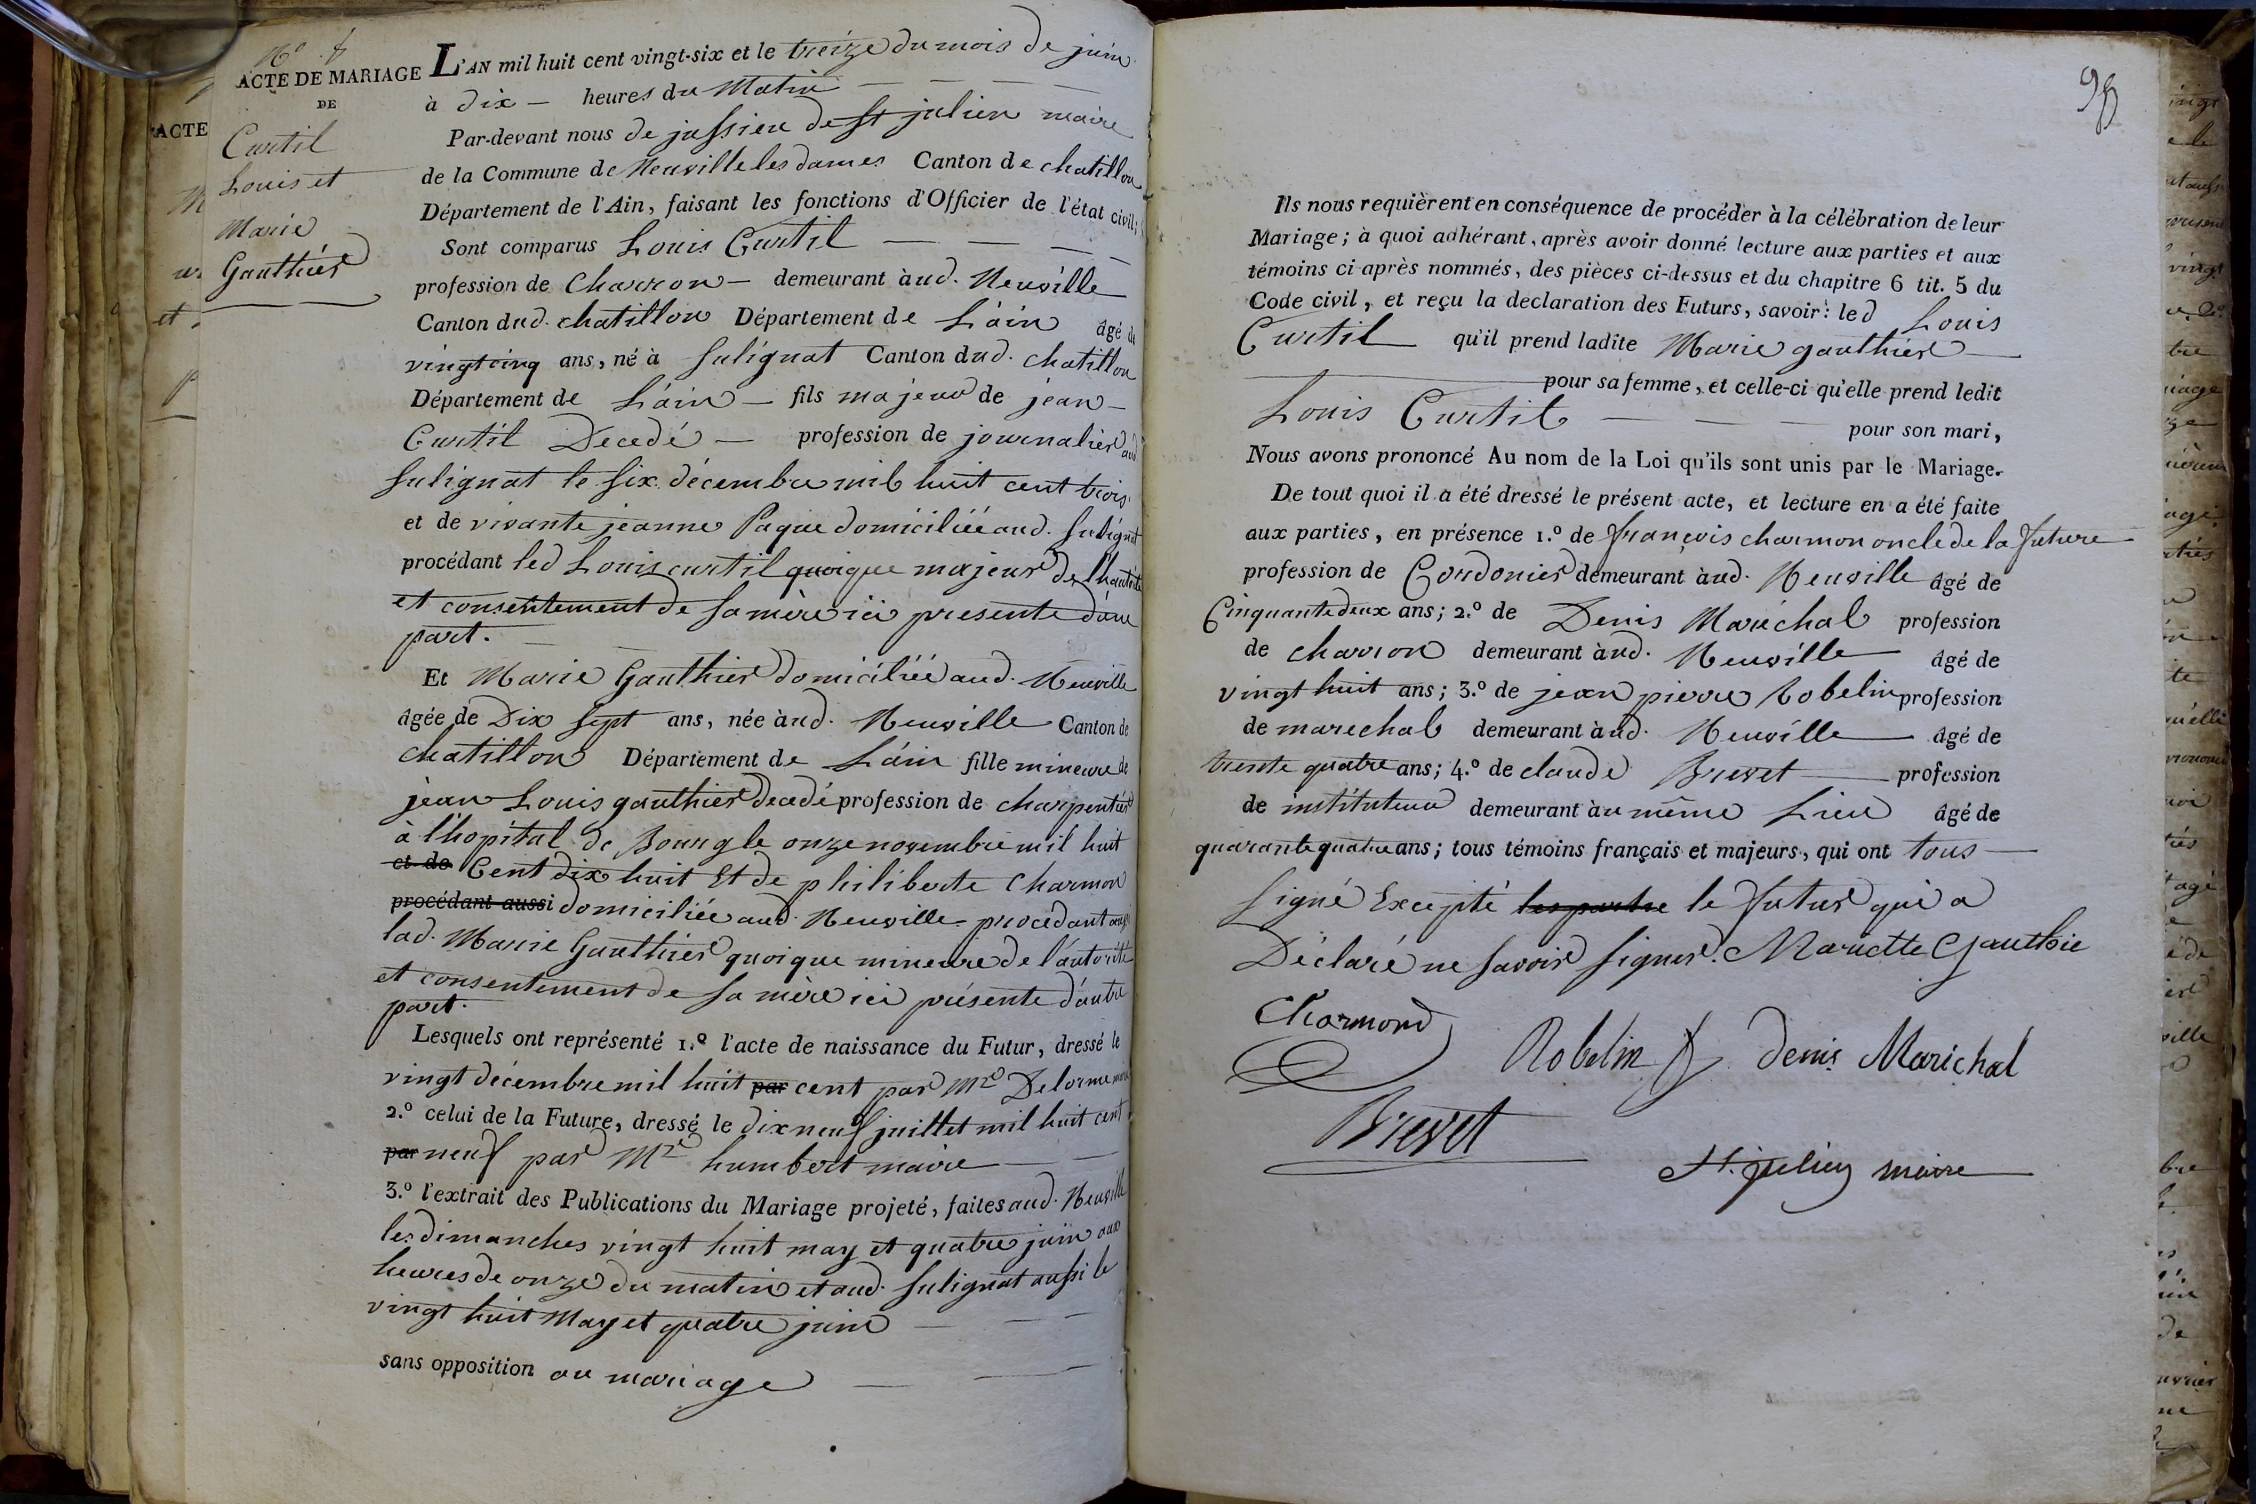 ACTE DE MARIAGE
DE
Curtil
Louis et
Marie
Gauthier
ACTE
L'AN mil huit cent vingt-six et le treize du mois de juin
à dix — heures du Matin
Par-devant nous de jussieu de st julien maire
de la Commune de Neuville les dames Canton de chatillon
Département de l'Ain, faisant les fonctions d'Officier de l'état civil;
Sont comparus Louis Curtil
profession de Charron — demeurant à aud. Neuville
Canton dud. chatillon Département de L'ain âgé de
vingt cinq ans, né à Sulignat Canton dud. chatillon
Département de L'ain — fils majeur de jean —
Curtil Decedé — profession de journalier aud
Sulignat le six décembre mil huit cent trois
et de vivante jeanne Paque domiciliée aud. Sulignat
procédant led Louis curtil quoique majeur de l'hautorité
et consentement de sa mère ici presente d'une
part.
Et Marie Gauthier domiciliée aud. Neuville
âgée de Dix sept ans, née à aud. Neuville Canton de
chatillon Département de L'ain fille mineure de
jean Louis gauthier decedé profession de charpentier
à l'hopital de Bourg le onze novembre mil huit
et de Cent dix huit Et de philiberte Charmon
procédant aussi domiciliée aud. Neuville procedant aussi
lad. Marie Gauthier quoique mineure de l'autorité
et consentement de sa mère ici présente d'autre
part.
Lesquels ont représenté 1.º l'acte de naissance du Futur, dressé le
vingt décembre mil huit par cent par Mre Delorme maire
2.º celui de la Future, dressé le dix neuf juillet mil huit cent
par neuf par Mre humbert maire
3.º l'extrait des Publications du Mariage projeté, faites aud. Neuville
les dimanches vingt huit may et quatre juin aux
heures de onze du matin et aud. Sulignat aussi le
vingt huit May et quatre juin
sans opposition au mariage
Ils nous requièrent en conséquence de procéder à la célébration de leur
Mariage; à quoi adhérant, après avoir donné lecture aux parties et aux
témoins ci-après nommés, des pièces ci-dessus et du chapitre 6 tit. 5 du
Code civil, et reçu la declaration des Futurs, savoir: led Louis
Curtil qu'il prend ladite Marie gauthier
pour sa femme, et celle-ci qu'elle prend ledit
Louis Curtil pour son mari,
Nous avons prononcé Au nom de la Loi qu'ils sont unis par le Mariage.
De tout quoi il a été dressé le présent acte, et lecture en a été faite
aux parties, en présence 1.º de françois charmon oncle de la future
profession de Cordonier demeurant à aud. Neuville âgé de
Cinquante deux ans; 2.º de Denis Maréchal profession
de charron demeurant à aud. Neuville âgé de
vingt huit ans; 3.º de jean pierre Robelin profession
de marechal demeurant à aud. Neuville âgé de
trente quatre ans; 4.º de claude Brevet profession
de instituteur demeurant à au même Lieu âgé de
quarante quatre ans; tous témoins français et majeurs, qui ont tous
signé Excepté les parties le futur qui a
Déclaré ne savoir signer. Mariette Gauthie
Charmond
Robelin denis Marichal
Brevet
St. julien maire